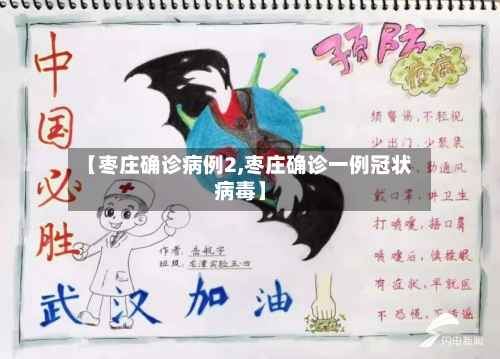 中国必胜
预防
疫病
【枣庄确诊病例2,枣庄确诊一例冠状
病毒】
须警惕,不轻视
少出门,少聚集
勤通风
戴口罩,讲卫生
打喷嚏,捂口鼻
喷嚏后,慎揉眼
有症状,早就医
不恐慌,不传谣
作者:岳航宇
班级:龙潭实验五·四
武汉加油
闪电新闻